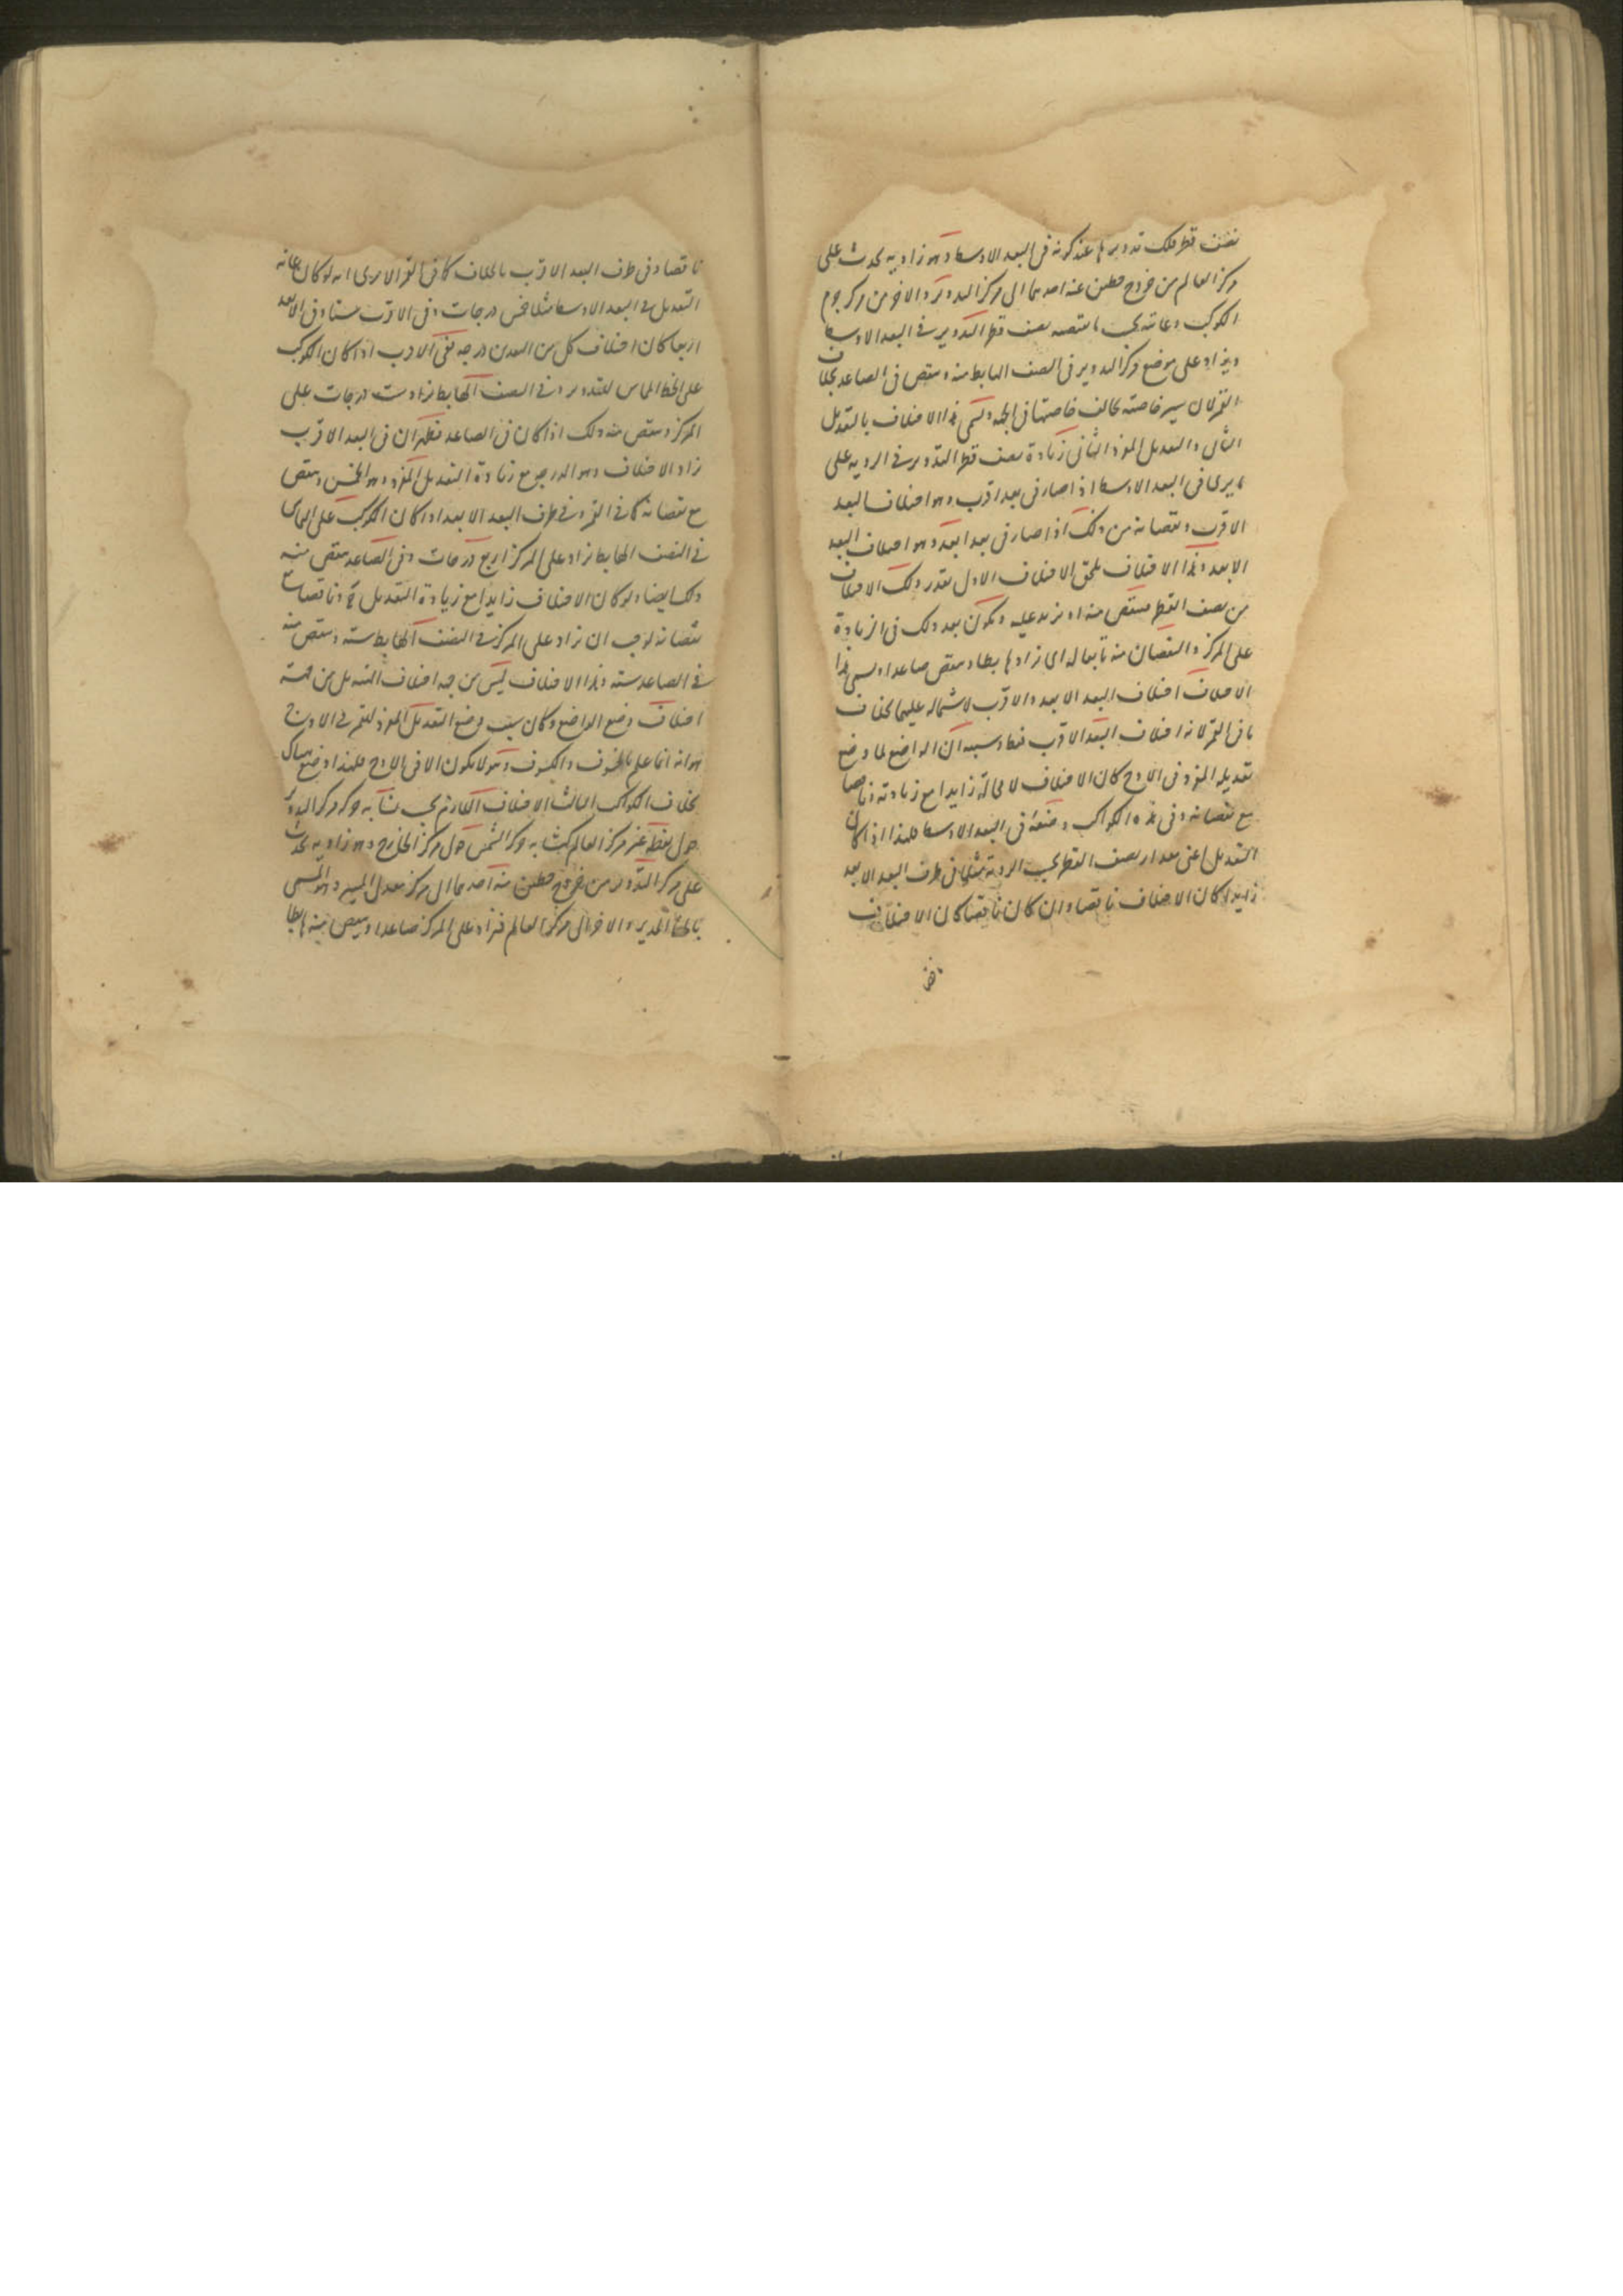 نصف قطر فلك تدويرها عند كونه فى البعد الاوسط وهو زاوية يحدث على
مركز العالم من خروج خطين عنه احدهما الى مركز التدوير والاخر من مركز جرم
الكوكب وغايته بحسب ما يقتضيه نصف قطر التدوير فى البعد الاوسط
ويزاد على موضع مركز التدوير فى النصف الهابط منه وينقص فى الصاعد بخلاف
القمر لان سير خاصته يخالف خاصتها فى الجهة ويسمى هذا الاختلاف بالتعديل
الثانى والتعديل المفرد الثانى زيادة نصف قطر التدوير فى الروية على
ما يرى فى البعد الاوسط اذا صار فى بعد اقرب وهو اختلاف البعد
الاقرب ونقصانه من ذلك اذا صار فى بعد ابعد وهو اختلاف البعد
الابعد وهذا الاختلاف يلحق الاختلاف الاول بقدر ذلك الاختلاف
من نصف القطر فينقص منه او يزيد عليه ويكون بعد ذلك فى الزيادة
على المركز والنقصان منه تابعا له اى يزاد هابطا وينقص صاعدا ويسمى هذا
الاختلاف اختلاف البعد الابعد والاقرب لاشتماله عليهما بخلاف
ما فى القمر لانه اختلاف البعد الاقرب فقط وسببه ان الواضع لما وضع
تعديله المفرد فى الاوج كان الاختلاف لا محالة زايدا مع زيادته وناقصا
مع نقصانه وفى هذه الكواكب وضعه فى البعد الاوسط فلهذا اذا كان
التعديل اعنى مقدار نصف القطر بحسب الروية مثلا فى طرف البعد الابعد
زايدا كان الاختلاف ناقصا وان كان ناقصا كان الاختلاف
ناقصا وفى طرف البعد الاقرب بالخلاف كما فى القمر الا يرى انه لو كان غاية
التعديل فى البعد الاوسط مثلا خمس درجات وفى الاقرب ستا وفى الابعد
اربعا كان اختلاف كل من البعدين درجة ففى الاقرب اذا كان الكوكب
على الخط المماس للتدوير وفى النصف الهابط يزاد ست درجات على
المركز وينقص منه ذلك اذا كان فى الصاعد فظهر ان فى البعد الاقرب
زاد الاختلاف وهو الدرجة مع زيادة التعديل المفرد وهو الخمس وينقص
مع نقصانه كما فى القمر وفى طرف البعد الابعد اذا كان الكوكب على المماس
فى النصف الهابط يزاد على المركز اربع درجات وفى الصاعد ينقص منه
ذلك ايضا ولو كان الاختلاف زايدا مع زيادة التعديل وناقصا مع
نقصانه لوجب ان يزاد على المركز فى النصف الهابط ستة وينقص منه
فى الصاعد ستة وهذا الاختلاف ليس من جهة اختلاف التعديل من جهة
اختلاف وضع الواضع وكان سبب وضع التعديل المفرد للقمر فى الاوج
هو انه انما علم بالخسوف والكسوف وهو لا يكون الا فى الاوج فلهذا وضع هناك
بخلاف الكواكب الثالث الاختلاف اللازم بحسب تشابه حركة مركز التدوير
حول نقطة غير مركز العالم كتشابه حركة الشمس حول مركز الخارج وهو زاوية يحدث
على مركز التدوير من خروج خطين منه احدهما الى مركز معدل المسير وهو المسمى
بالخط المدير والاخر الى مركز العالم فيزاد على المركز صاعدا وينقص منه هابطا